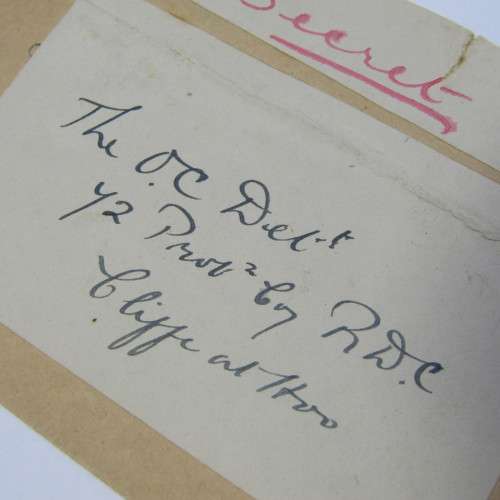 Secret
The O.C Det-t
42 Prov² Coy RDC
Cliffe at Hoo